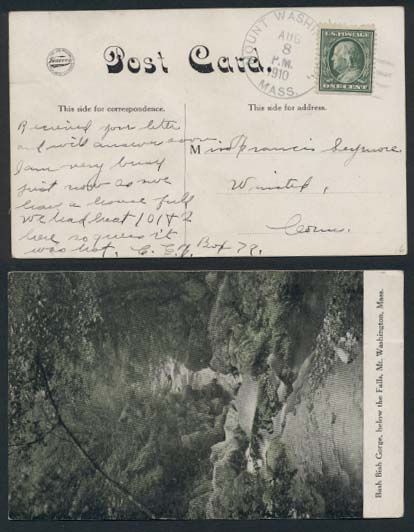 Post Card.
MOUNT WASHIN
AUG
8
P.M.
1910
MASS.
U.S. POSTAGE
ONE CENT
This side for correspondence.
This side for address.
Received your letter
and will answer soon
I am very busy
just now as we
have a house full
we had heat 101 & 2
here so guess it
was hot. Box 72.
Miss Francis Seymore
Winsted,
Conn.
Bash Bish Gorge, below the Falls, Mt. Washington, Mass.